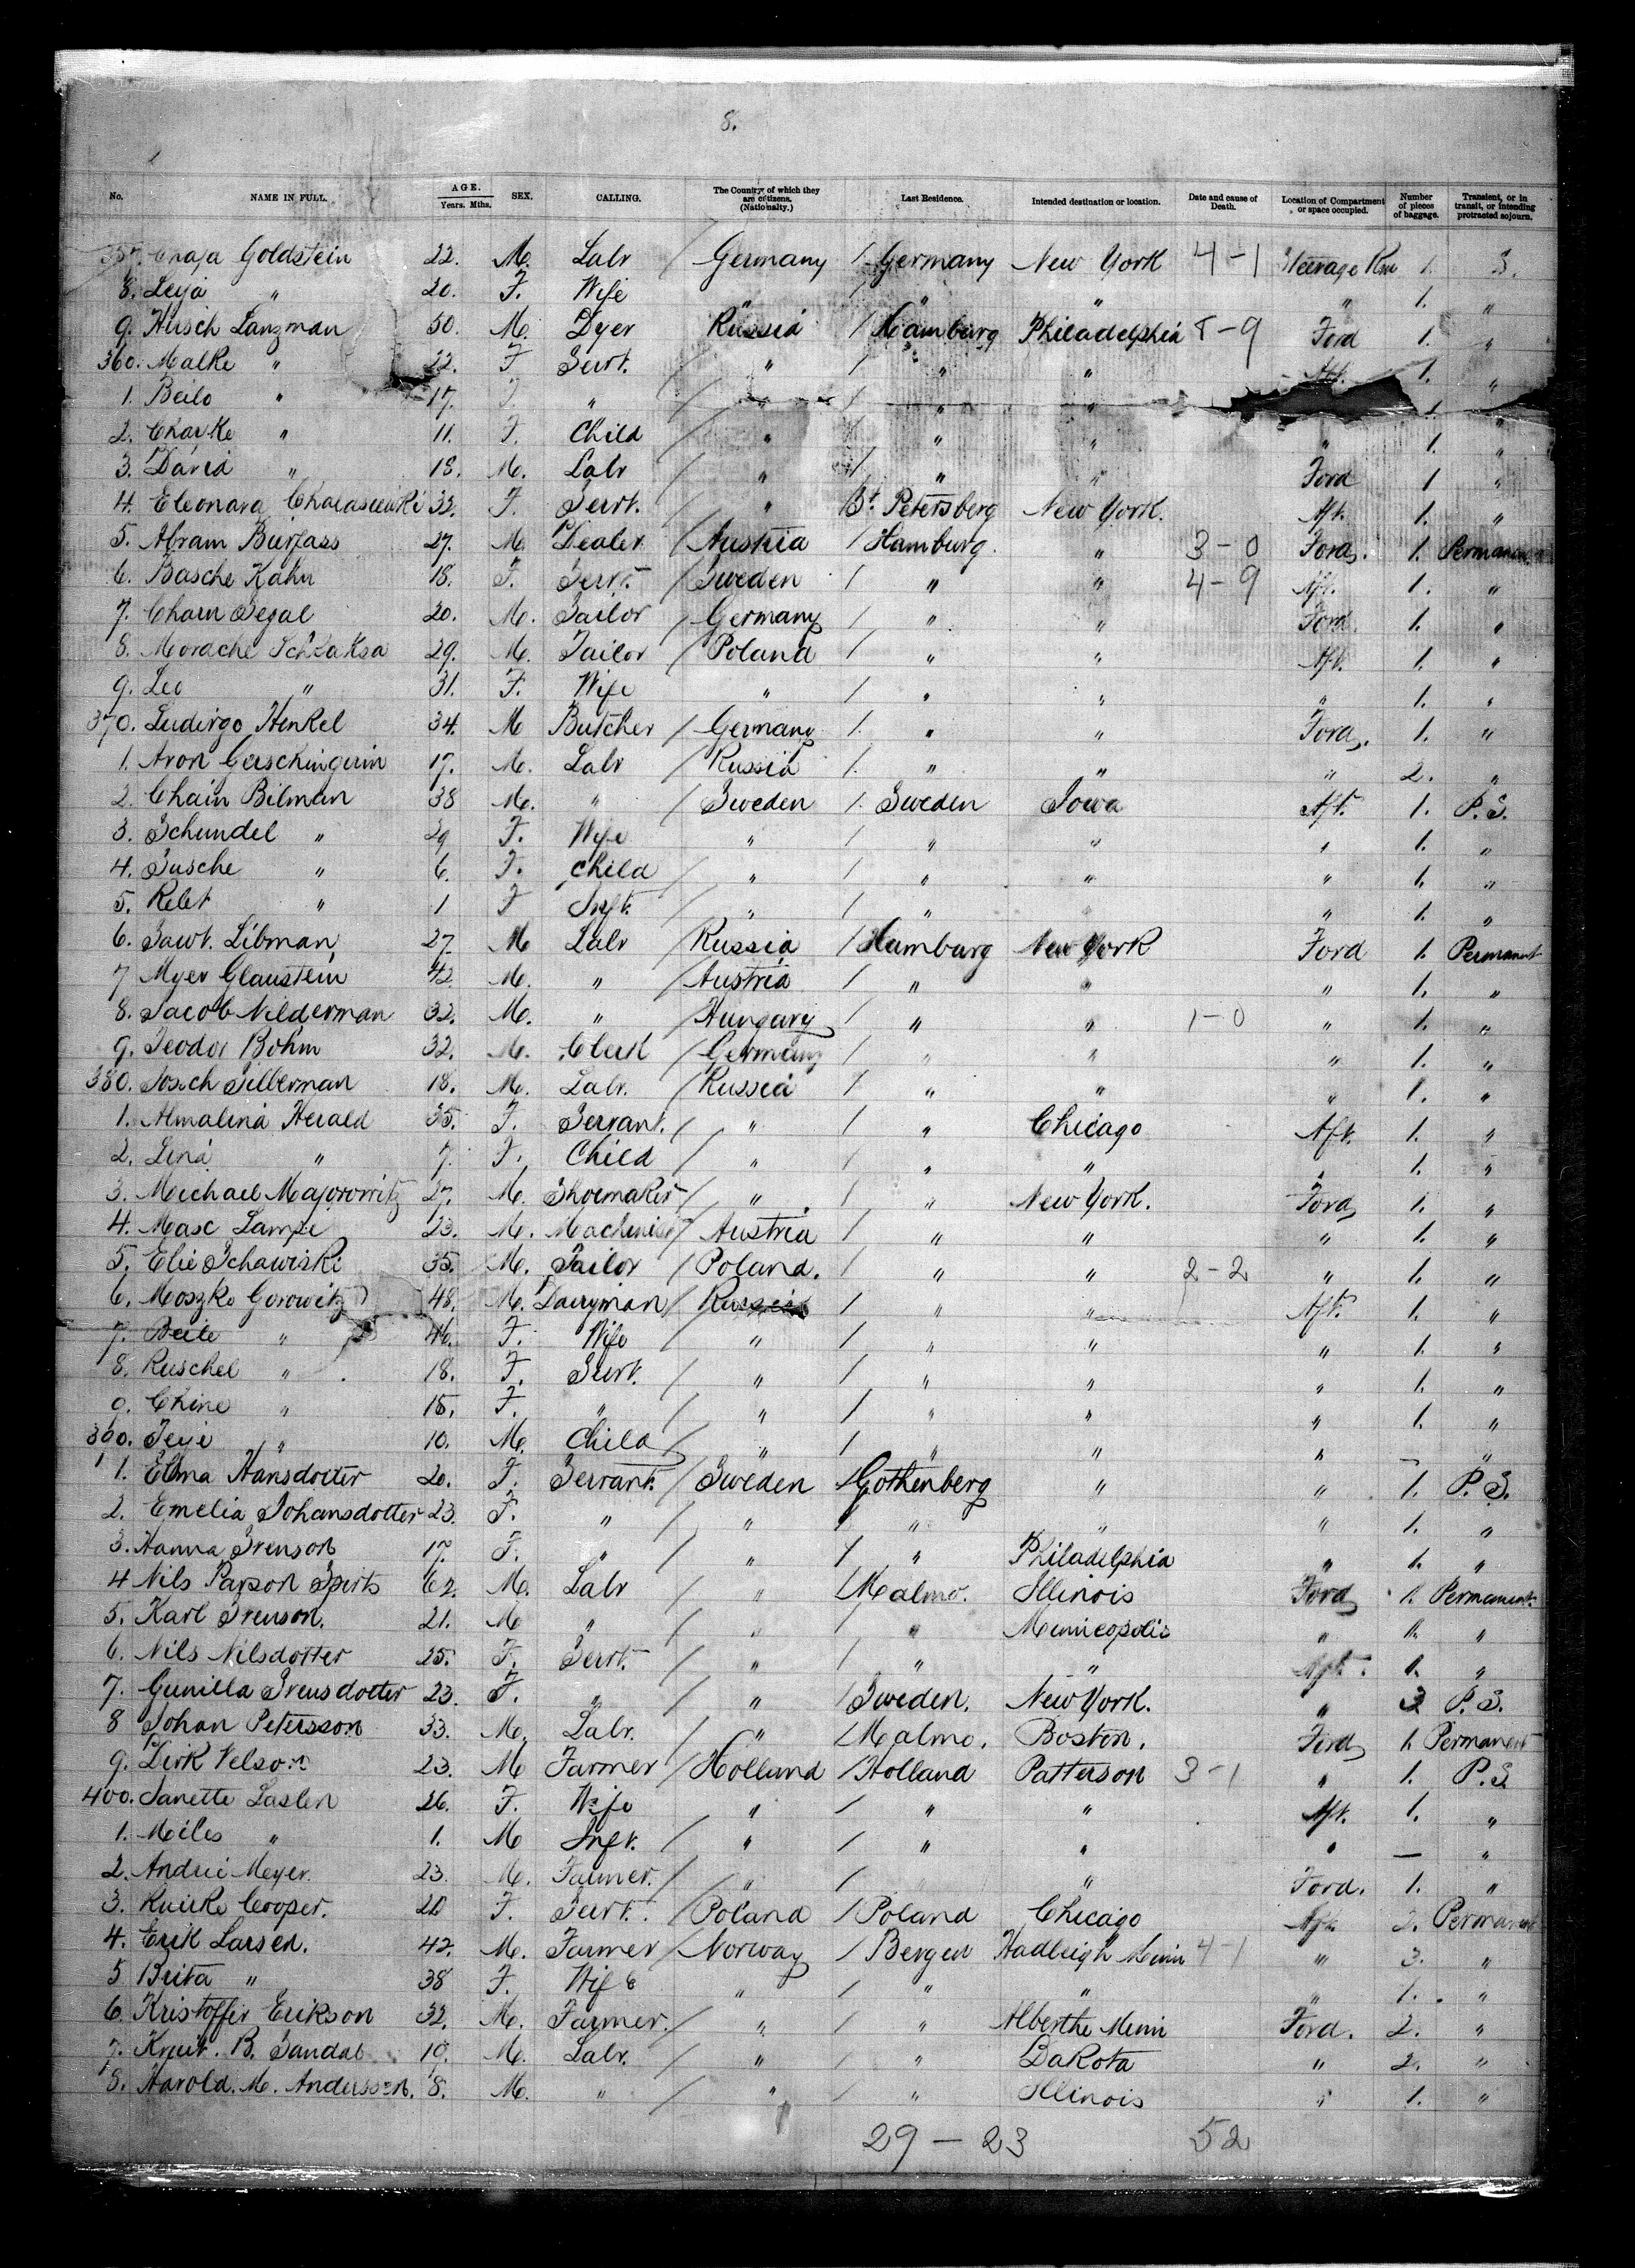 8.
No. NAME IN FULL. AGE. Years. Mths. SEX. CALLING. The Country of which they are citizens. (Nationality.) Last Residence. Intended destination or location. Date and cause of Death. Location of Compartment or space occupied. Number of pieces of baggage. Transient, or in transit, or intending protracted sojourn.
357. Chaja Goldstein 22. M. Labr / Germany / Germany New York 4-1 Steerage 1. S.
8. Leija " 20. F. Wife " / " " " 1. "
9. Hirsch Lanzman 50. M. Dyer Russia / Hamburg Philadelphia 5-9 Ford 1. "
360. Malke " 22. F Servt. / " / " " Aft. 1. "
1. Beilo " 17. F. " / " / " " 1. "
2. Charke " 11. F. Child / " / " " " 1. "
3. David " 18. M. Labr / " / " " Ford 1 "
4. Eleonara 33. F. Servt. " / St. Petersberg New York. Aft. 1. "
5. Abram Birfass 27. M. Dealer / Austria / Hamburg. " 3-0 Ford. 1. Permanent
6. Basche Kahn 18. F. Servt. / Sweden / " " 4-9 Aft. 1. "
7. Cham Segal 20. M. Tailor / Germany / " " Ford. 1. "
8. Morache 29. M. Tailor / Poland / " " Aft. 1. "
9. Leo " 31. F. Wife " / " " " 1. "
370. Ludirgo Henkel 34. M Butcher / Germany / " " Ford. 1. "
1. Aron Gerschingerin 17. M. Labr / Russia / " " " 2. "
2. Chain Bilman 38 M. " / Sweden / Sweden Iowa Aft. 1. P.S.
3. Schundel " 29 F. Wife " / " " " 1. "
4. Susche " 6. F. Child / " / " " " 1. "
5. Relet " 1 F Inft. / " / " " " 1. "
6. Sawt. Libman 27. M Labr / Russia / Hamburg New York Ford 1. Permanent
7 Myer Glaustein 42. M. " / Austria / " " " 1. "
8. Jacob Nilderman 32. M. " / Hungary / " " 1-0 " 1. "
9. Teodor Bohm 32. M. Clerk / Germany / " " " 1. "
380. Josich Silberman 18. M. Labr. / Russia / " " " 1. "
1. Almalina Herald 35. F. Servant. / " / " Chicago Aft. 1. "
2. Lina " 7. F. Child / " / " " " 1. "
3. Michael Majorowitz 27. M. Shoemaker / " / " New York. Ford 1. "
4. Masc Lampe 23. M. Machinist / Austria / " " " 1. "
5. Elie Schawiski 35. M. Tailor / Poland. / " " 2-2 " 1. "
6. Moszko Gorowitz 48. M. Dairyman / Russia / " " Aft. 1. "
7. Beile " 46. F. Wife / " / " " " 1. "
8. Ruschel " 18. F. Servt. / " / " " " 1. "
9. Chine " 15. F. " / " / " " " 1. "
390. Feije " 10. M. Child / " / " " " - "
1. Elma Hansdotter 20. F. Servant. / Sweden / Gothenberg " " 1. P.S.
2. Emelia Johansdotter 23. F. " / " / " " " 1. "
3. Hanna Svenson 17. F. " / " / " Philadelphia " 1. "
4 Nils Parson Spirts 62. M. Labr / " / Malmo. Illinois Ford 1. Permanent.
5. Karl Svenson. 21. M " / " / " Minieopolis " 1. "
6. Nils Nilsdotter 25. F. Servt. / " / " " Aft. 1. "
7. Gunilla Svensdotter 23. F. " / " / Sweden. New York. " 3 P.S.
8 Johan Petersson 33. M. Labr. / " / Malmo. Boston. Ford 1. Permanent
9. Dirk Velson 23. M Farmer / Holland / Holland Patterson 3-1 " 1. P.S
400. Janette Laslen 26. F. Wife " / " " Aft. 1. "
1. Miles " 1. M Inft. / " / " " " — "
2. Andrie Meyer. 23. M. Farmer. / " / " Ford. 1. "
3. Cooper. 20 F. Servt. / Poland / Poland Chicago Aft 2. Permanent
4. Erik Larsen. 42. M. Farmer / Norway / Bergen Hadleigh Minn 4-1 " 3. "
5 Brita " 38 F. Wife " / " " " 1. "
6. Kristoffer Erikson 32. M. Farmer. / " / " Alberthe Minn Ford. 2. "
7. Knut. B. Sandal 19. M. Labr. / " / " Dakota " 2. "
8. Harold. M. Anderssen. 18. M. " / " / " Illinois " 1. "
29 - 23 52